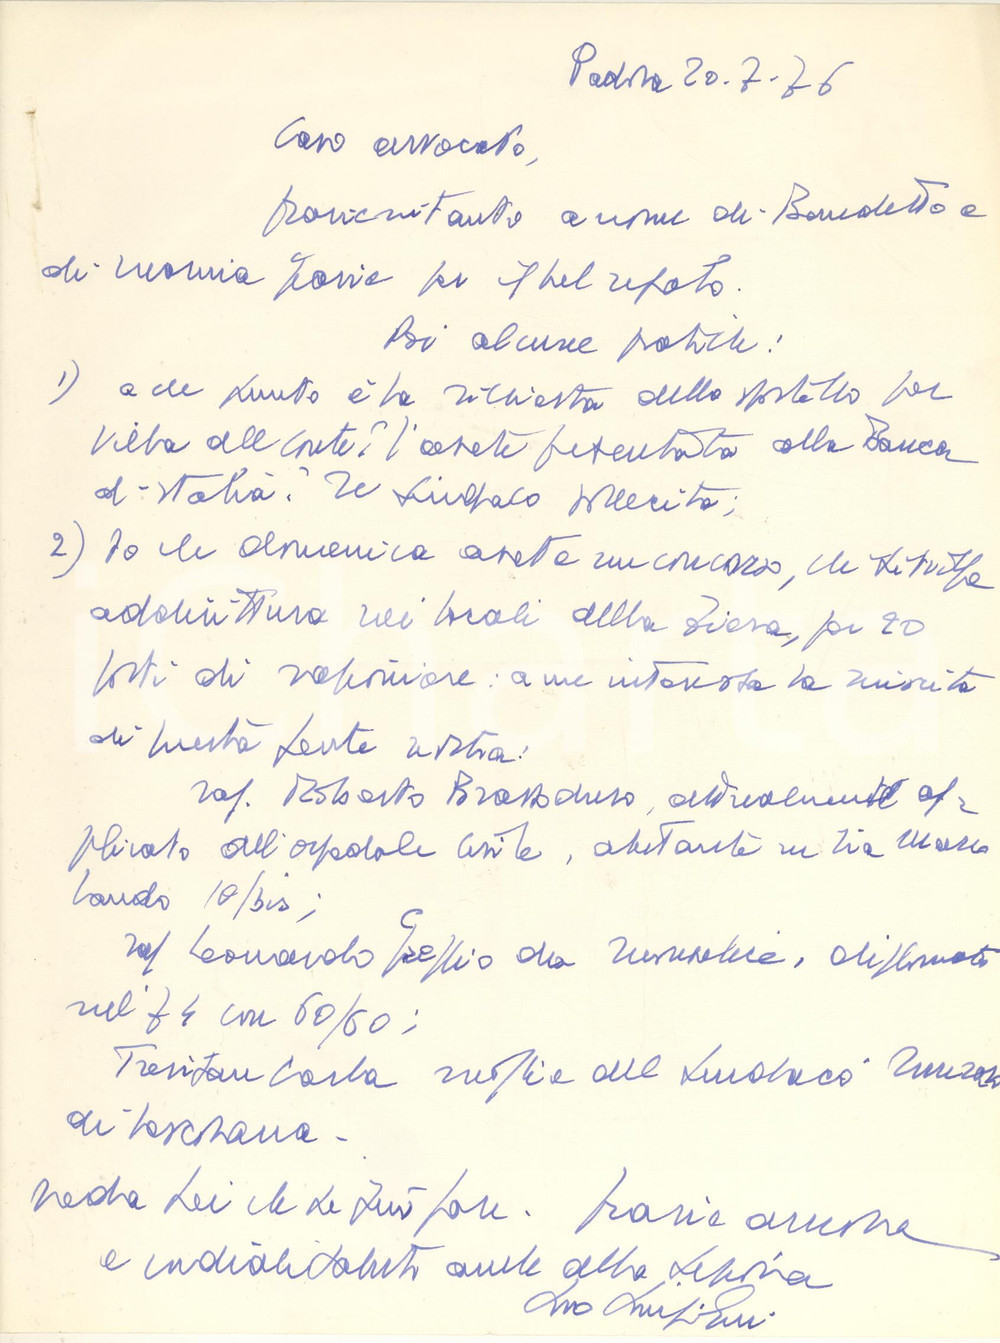 Padova 20-7-76
Caro avvocato,
innanzitutto a nome di Benedetto e
di mamma grazie per il bel regalo.
Poi alcune pratiche:
1) a che punto è la richiesta dello sportello per
Villa del Conte? l'avete presentata alla Banca
d'Italia? Il Sindaco sollecita;
2) so che domenica avete un concorso, che si svolge
addirittura nei locali della Fiera, per 20
posti di ragioniere: a me interessa la riuscita
di questa gente nostra:
rag. Roberto Brazzoduro, attualmente ap=
plicato all'ospedale Civile, abitante in Via
10/bis;
rag Leonardo da, diplomato
nel '74 con 60/60;
Carla moglie del Sindaco
di Loreggia.
Veda Lei che si può fare. Grazie ancora
e cordiali saluti anche alla Signora
Suo Luigi Gui
iCharta